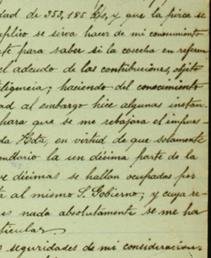 idad de 353,185 Ks, y que la pirca se
suplico se sirva hacer de mi conocimiento
para saber si la cosecha en referen
el adeudo de las contribuciones, objeto
diligencia; haciendo del conocimiento
ad al embargo hice algunas instan
para que se me rebajara el impues
la Hda, en virtud de que solamente
arrendatario la un décima parte de la
ve décimas se hallan ocupadas por
al mismo S. Gobierno; y cuya re
es nada absolutamente se me ha
ticular
seguridades de mi consideracion